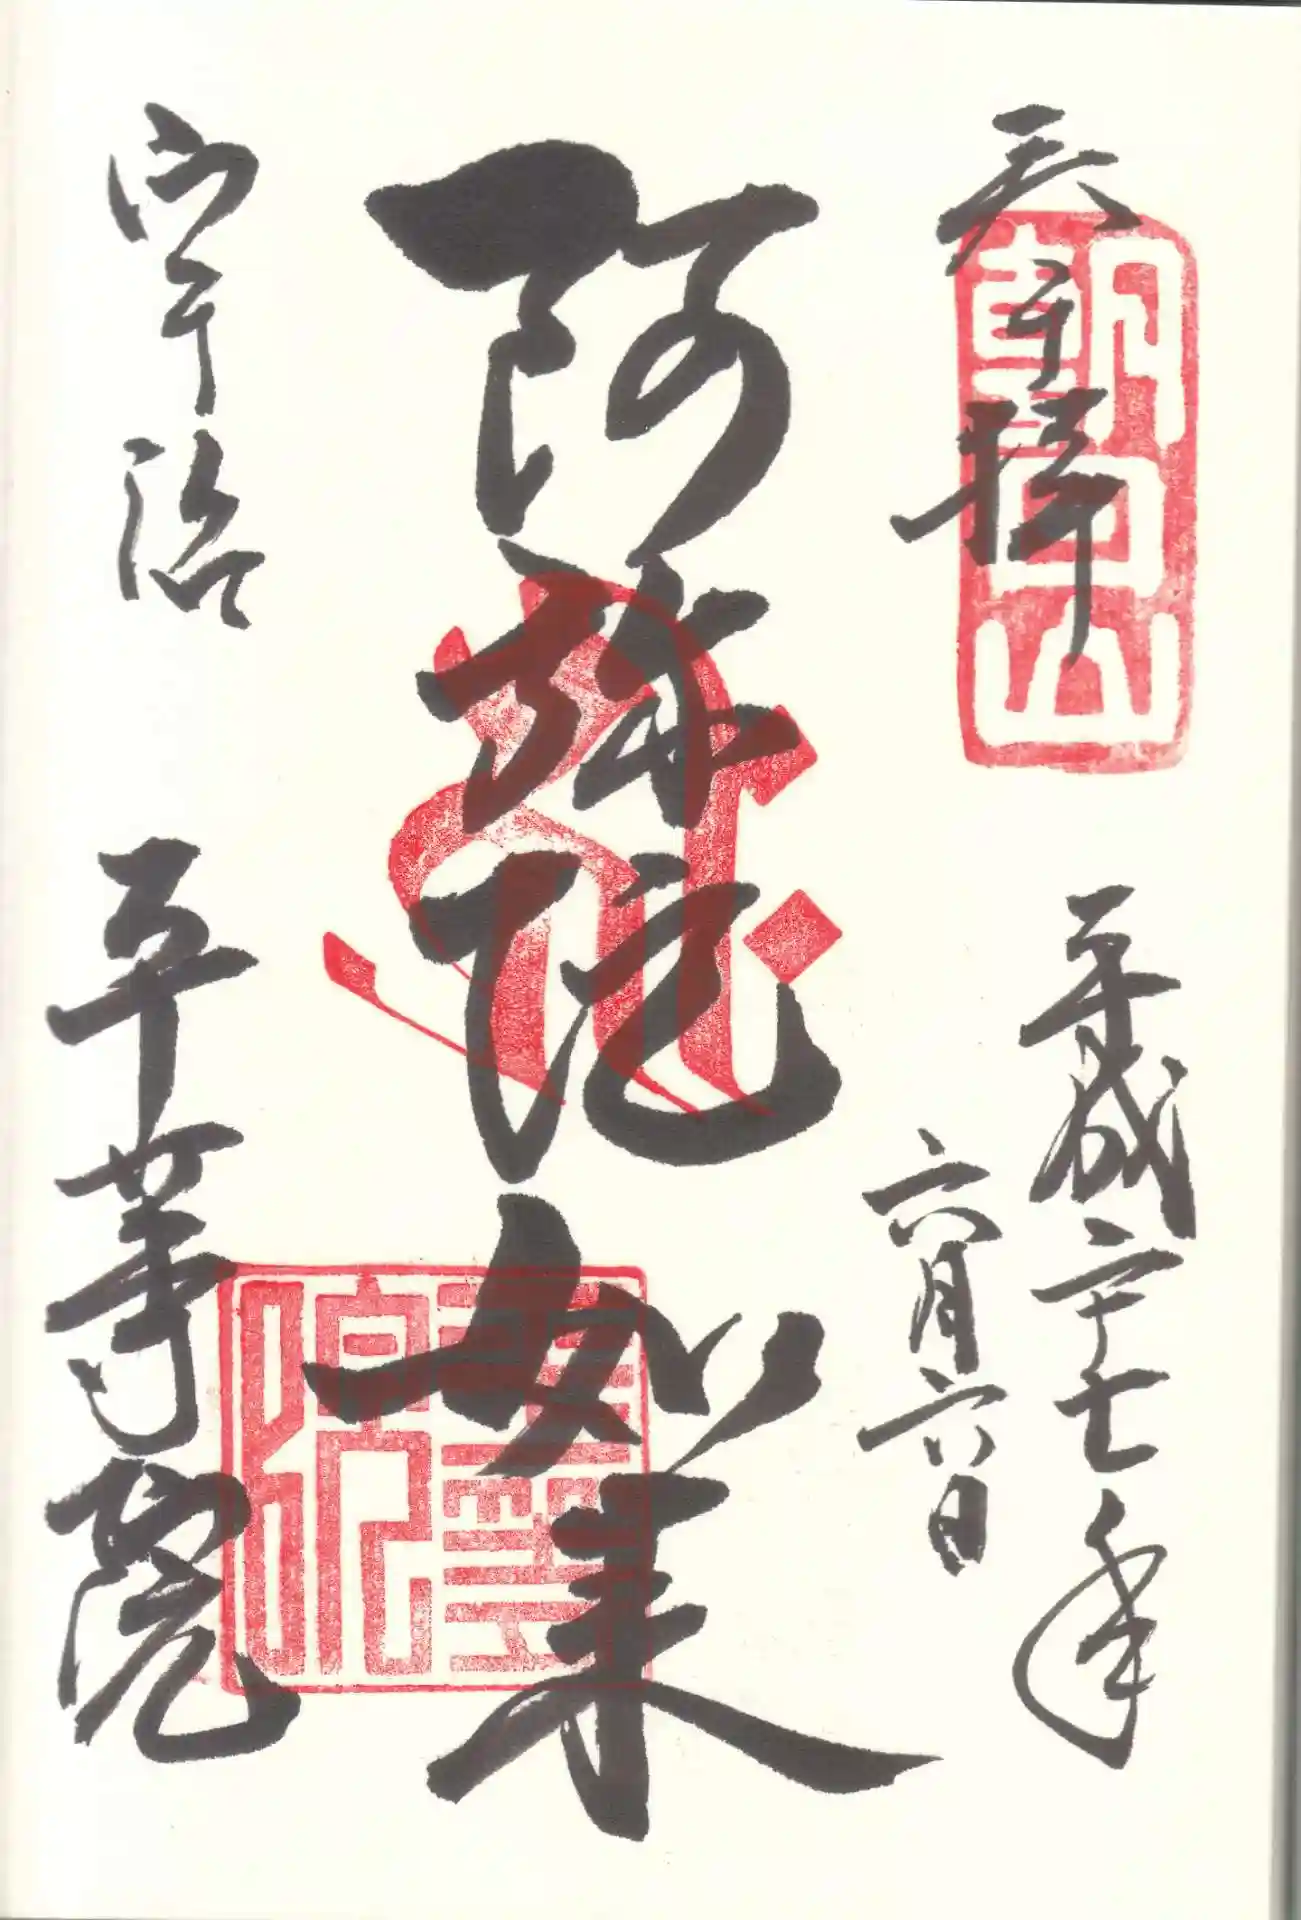 奉拝
朝日山
平成二十七年
六月六日
阿弥陀如来
宇治 平等院